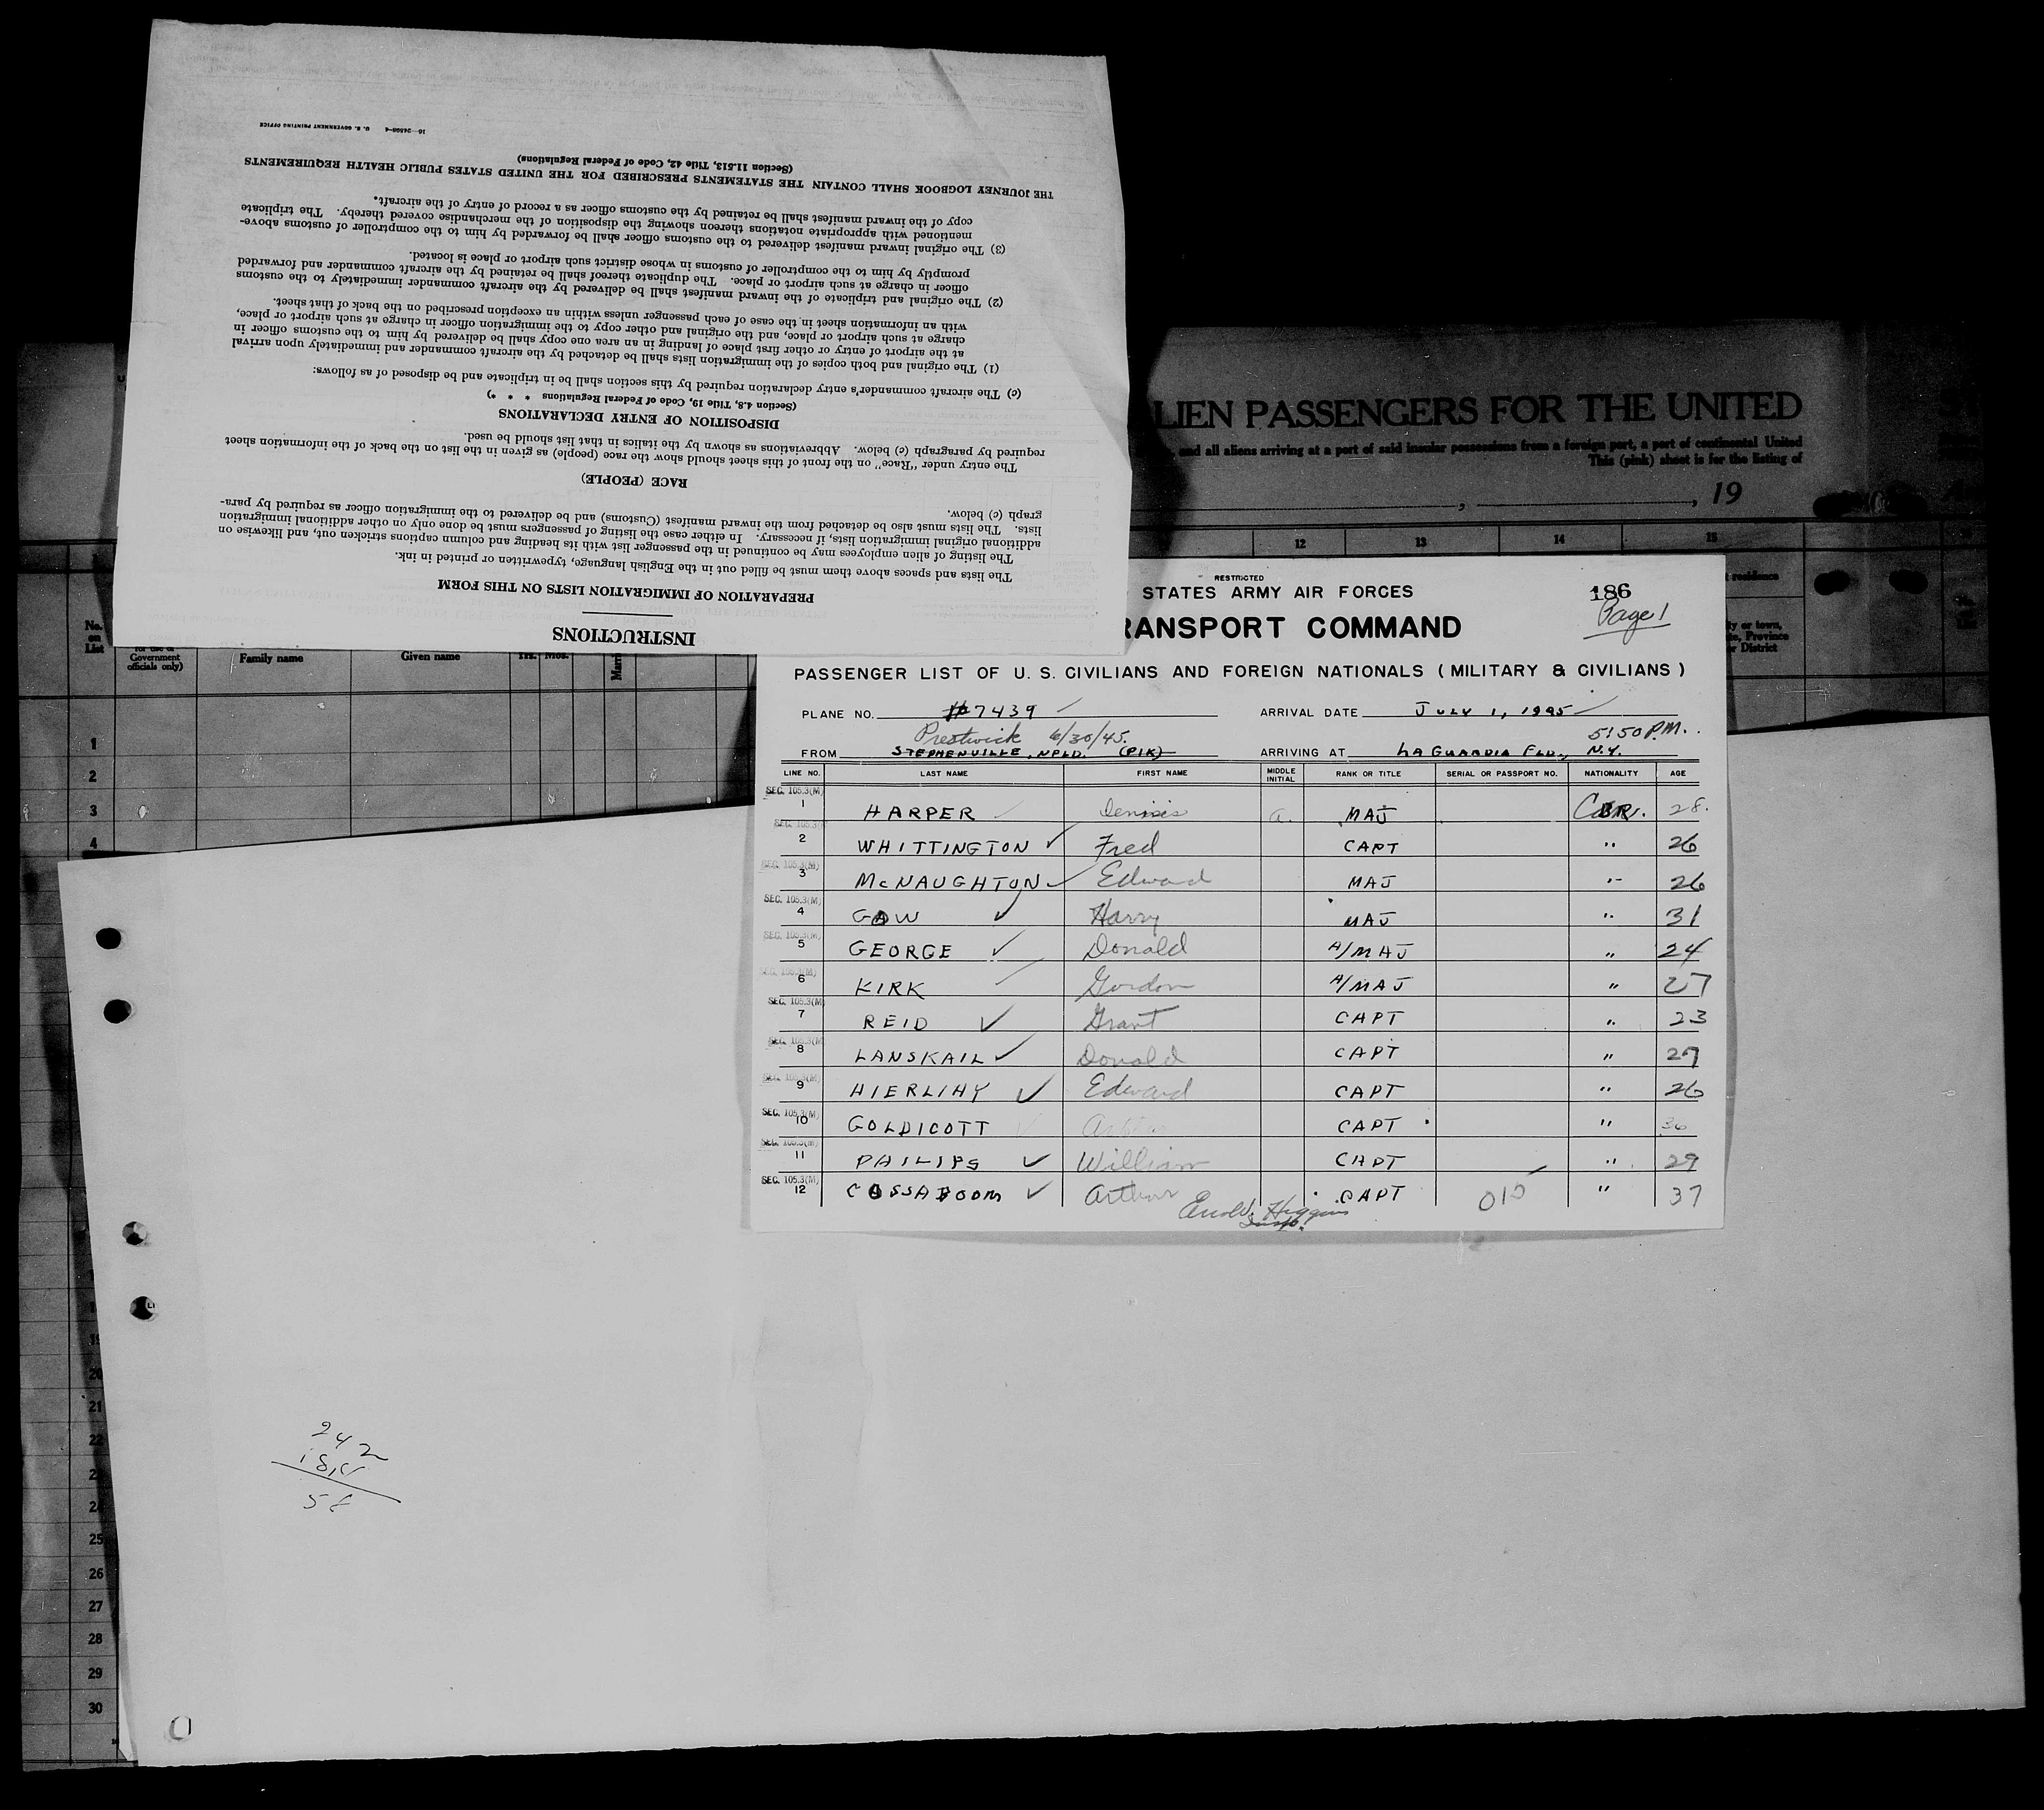 INSTRUCTIONS
PREPARATION OF IMMIGRATION LISTS ON THIS FORM
The lists and spaces above them must be filled out in the English language, typewritten or printed in ink.
The listing of alien employees may be continued in the passenger list with its heading and column captions stricken out, and likewise on
additional original immigration lists, if necessary. In either case the listing of passengers must be done only on other additional immigration
lists. The lists must also be detached from the inward manifest (Customs) and be delivered to the immigration officer as required by para-
graph (c) below.
RACE (PEOPLE)
The entry under "Race" on the front of this sheet should show the race (people) as given in the list on the back of the information sheet
required by paragraph (c) below. Abbreviations as shown by the italics in that list should be used.
DISPOSITION OF ENTRY DECLARATIONS
(Section 4.8, Title 19, Code of Federal Regulations * * *)
(c) The aircraft commander's entry declaration required by this section shall be in triplicate and be disposed of as follows:
(1) The original and both copies of the immigration lists shall be detached by the aircraft commander and immediately upon arrival
at the airport of entry or other first place of landing in an area one copy shall be delivered by him to the customs officer in
charge at such airport or place, and the original and other copy to the immigration officer in charge at such airport or place,
with an information sheet in the case of each passenger unless within an exception prescribed on the back of that sheet.
(2) The original and triplicate of the inward manifest shall be delivered by the aircraft commander immediately to the customs
officer in charge at such airport or place. The duplicate thereof shall be retained by the aircraft commander and forwarded
promptly by him to the comptroller of customs in whose district such airport or place is located.
(3) The original inward manifest delivered to the customs officer shall be forwarded by him to the comptroller of customs above-
mentioned with appropriate notations thereon showing the disposition of the merchandise covered thereby. The triplicate
copy of the inward manifest shall be retained by the customs officer as a record of entry of the aircraft.
THE JOURNEY LOGBOOK SHALL CONTAIN THE STATEMENTS PRESCRIBED FOR THE UNITED STATES PUBLIC HEALTH REQUIREMENTS
(Section 11.513, Title 42, Code of Federal Regulations)
16—24508-4 U. S. GOVERNMENT PRINTING OFFICE
LIEN PASSENGERS FOR THE UNITED
, and all aliens arriving at a port of said insular possessions from a foreign port, a port of continental United
This (pink) sheet is for the listing of
, , 19
12 13 14 15
residence
y or town,
te, Province
r District
No. on List
for use of Government officials only)
Family name Given name Yrs. Mos.
1
2
3
4
RESTRICTED
STATES ARMY AIR FORCES 186
Page 1
RANSPORT COMMAND
PASSENGER LIST OF U. S. CIVILIANS AND FOREIGN NATIONALS (MILITARY & CIVILIANS)
PLANE NO. #7439 ARRIVAL DATE JULY 1, 1945
Prestwick 6/30/45. 5:50 P.M.
FROM STEPHENVILLE, NFLD. (PIK) ARRIVING AT LA GUARDIA FLD., N.Y.
LINE NO. LAST NAME FIRST NAME MIDDLE INITIAL RANK OR TITLE SERIAL OR PASSPORT NO. NATIONALITY AGE
SEC. 105.3(M) 1 HARPER Dennis a. MAJ Can. 28
SEC. 105.3(M) 2 WHITTINGTON Fred CAPT " 26
SEC. 105.3(M) 3 McNAUGHTON Edward MAJ " 26
SEC. 105.3(M) 4 GAW Harry MAJ " 31
SEC. 105.3(M) 5 GEORGE Donald A/MAJ " 24
SEC. 105.3(M) 6 KIRK Gordon A/MAJ " 27
SEC. 105.3(M) 7 REID Grant CAPT " 23
SEC. 105.3(M) 8 LANSKAIL Donald CAPT " 27
SEC. 105.3(M) 9 HIERLIHY Edward CAPT " 26
SEC. 105.3(M) 10 GOLDICOTT Arthur CAPT " 36
SEC. 105.3(M) 11 PHILIPS William CAPT " 29
SEC. 105.3(M) 12 CASSABOOM Arthur CAPT 010 " 37
Higgins
Insp.
242
20
21
22
24
25
26
27
28
29
30